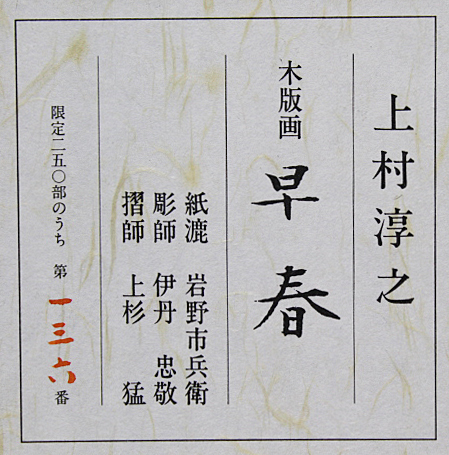 上村淳之
木版画 早春
紙漉 岩野市兵衛
彫師 伊丹 忠敬
摺師 上杉 猛
限定二五〇部のうち 第一三六番